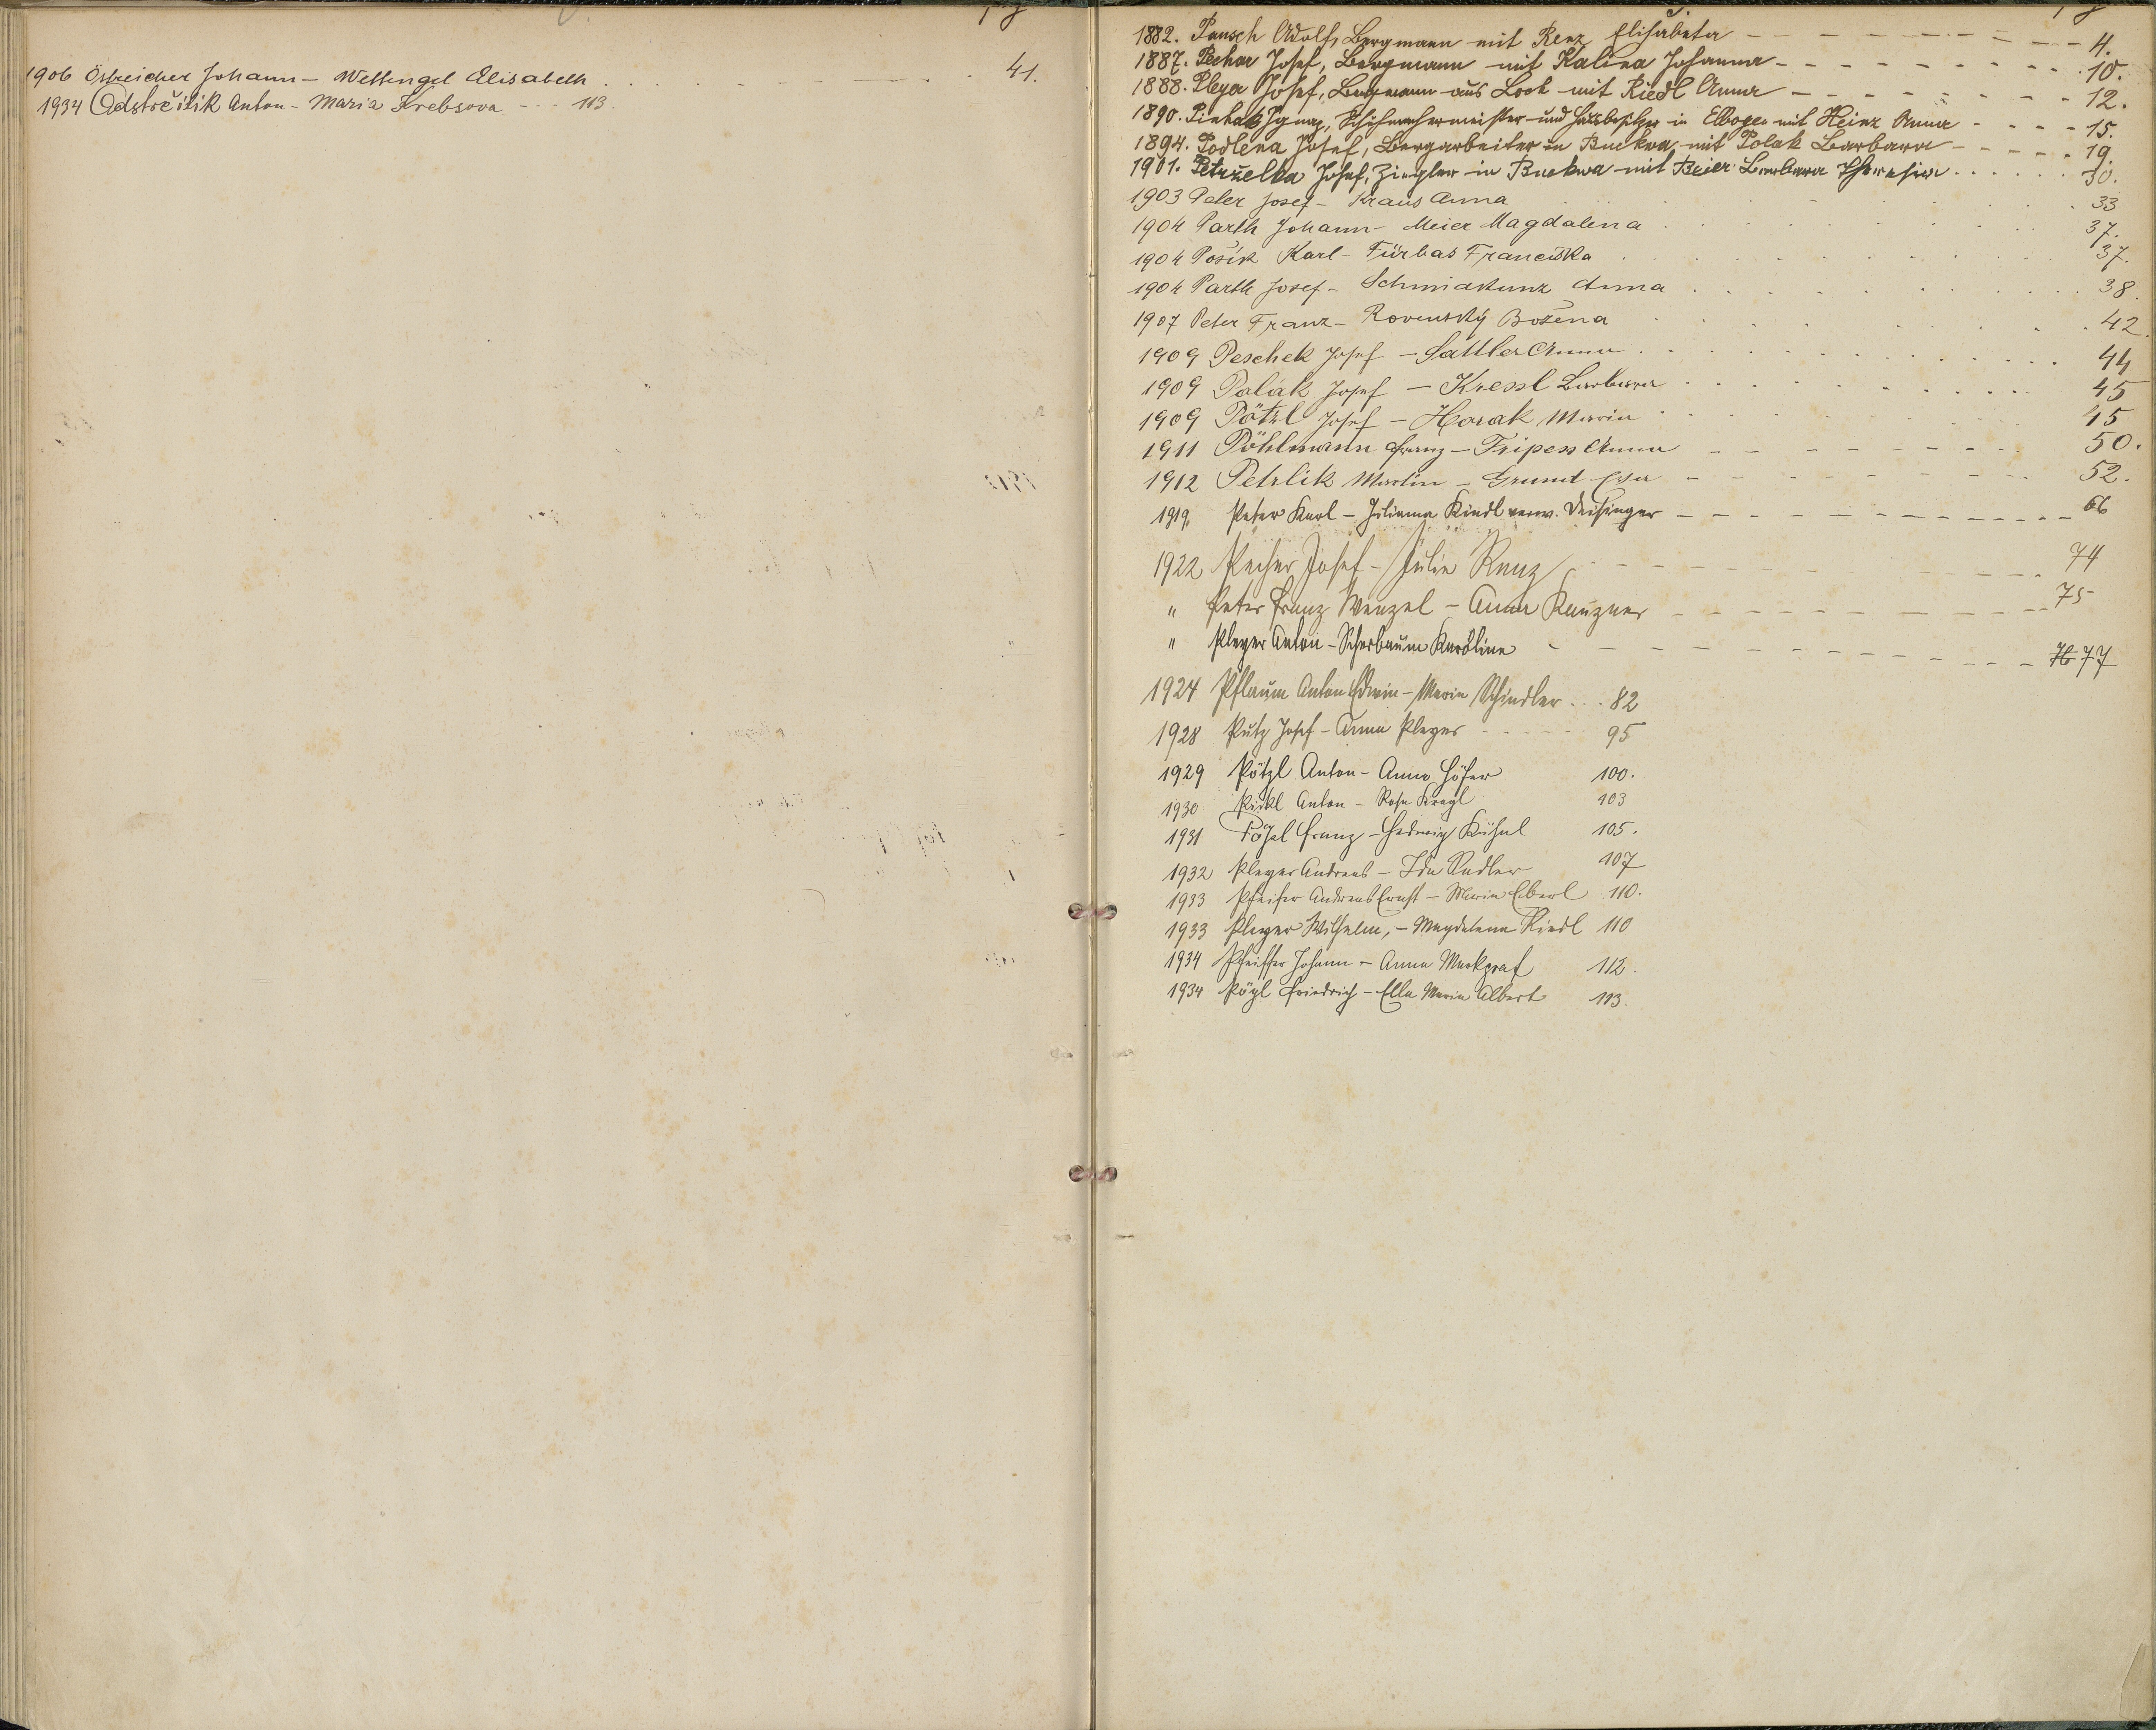 1906 Östreicher Johann - Wettengel Elisabeth . . . . . . 41.
1934 Odstrčilik Anton - Maria Krebsova - - - 113.
1882. Pausch Adolf, Bergmann mit Renz Elisabeta - - - - - - - - - 4.
1887. Pechar Josef, Bergmann mit Kalina Johanna - - - - - - - - - 10.
1888. Pleyer Josef, Bergmann aus Loch mit Riedl Anna - - - - - - - - - 12.
1890. Ignaz, Schuhmachermeister und Hausbesitzer in Elbogen mit Heinz Anna - - - - 15.
1894. Podlena Josef, Bergarbeiter in Buckwa mit Polak Barbara - - - - - 19.
1901. Petruželka Josef, Ziegler in Buckwa mit Beier Barbara Theresia . . . . . . 30.
1903 Peter Josef - Kraus Anna . . . . . . 33
1904 Parth Johann - Meier Magdalena . . . . . . 37.
1904 Pošik Karl - Fürbas Franciska . . . . . . 37.
1904 Parth Josef - Schmidkunz Anna . . . . . . 38.
1907 Peter Franz - Rovenský Božena . . . . . . 42.
1909 Peschek Josef - Sattler Anna . . . . . . 44
1909 Palák Josef - Kressl Barbara . . . . . . 45
1909 Pötzl Josef - Horak Maria . . . . . . 45
1911 Pöhlmann Franz - Tripess Anna - - - - - - - - 50.
1912 Petrlik Martin - Grund Eva - - - - - - - - 52.
1919. Peter Karl - Juliana Kindl verw. Deisinger - - - - - - - - 66
1922 Pecher Josef - Julie Renz - - - - - - - - 74
" Peter Franz Wenzel - Anna Kauzner - - - - - - - - 75
" Pleyer Anton - Scherbaum Karoline - - - - - - - - 76 77
1924 Pflaum Anton Edwin - Maria Schindler . . . 82
1928 Putz Josef - Anna Pleyer - - - - - 95
1929 Pötzl Anton - Anna Höfer 100.
1930 Pickl Anton - Rosa Kragl 103
1931 Franz - Hedwig Kühnl 105.
1932 Pleyer Andreas - Ida Sadler 107
1933 Pfeifer Andreas Ernst - Maria Eberl 110.
1933 Pleyer Wilhelm, - Magdalena Riedl 110
1934 Pfeiffer Johann - Anna Markgraf 112.
1934 Pögl Friedrich - Ella Maria Albert 113.